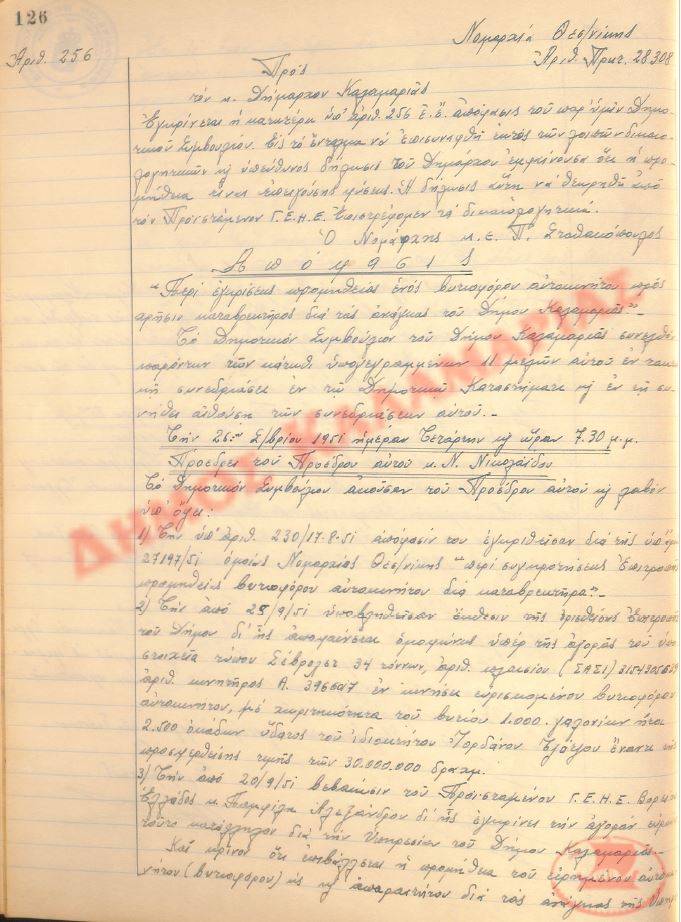 126
Νομαρχία Θεσ/νίκης
Ἀριθ. 256
Ἀριθ. Πρωτ. 28308
Πρός
τόν κ. Δήμαρχον Καλαμαριᾶς
Ἐγκρίνεται ἡ κατωτέρω ὑπ' ἀριθ. 256 ἐ.ἔ. ἀπόφασις τοῦ παρ' ὑμῖν Δημο-
τικοῦ Συμβουλίου. Εἰς τό ἔνταλμα νά ἐπισυναφθῇ ἐκτός τῶν λοιπῶν δικαιο-
λογητικῶν κ' ὑπεύθυνος δήλωσις τοῦ Δημάρχου ἐμφαίνουσα ὅτι ἡ προ-
μήθεια εἶναι ἐπειγούσης φύσεως. Ἡ δήλωσις αὕτη νά θεωρηθῇ ἀπό
τόν Προϊστάμενον Γ.Ε.Η.Ε. Ἐπιστρέφομεν τά δικαιολογητικά.
Ὁ Νομάρχης κ.ε. Π. Σταθακόπουλος
Ἀπόφασις
"Περί ἐγκρίσεως προμηθείας ἑνός βυτιοφόρου αὐτοκινήτου πρός
χρῆσιν καταβρεκτῆρος διά τάς ἀνάγκας τοῦ Δήμου Καλαμαριᾶς"-
Τό Δημοτικόν Συμβούλιον τοῦ Δήμου Καλαμαριᾶς συνελθόν
παρόντων τῶν κάτωθι ὑπογεγραμμένων 11 μελῶν αὐτοῦ ἐν τακτι-
κῇ συνεδριάσει ἐν τῷ Δημοτικῷ Καταστήματι κ' ἐν τῇ συ-
νήθει αἰθούσῃ τῶν συνεδριάσεων αὐτοῦ.-
Τήν 26ην Σ/βρίου 1951 ἡμέραν Τετάρτην κ' ὥραν 7.30 μ.μ.
Προεδρεί τοῦ Προέδρου αὐτοῦ κ. Ν. Νικολαΐδου
Τό Δημοτικόν Συμβούλιον ἀκοῦσαν τοῦ Προέδρου αὐτοῦ κ' λαβόν
ὑπ' ὄψει:
1) Τήν ὑπ' ἀριθ. 230/17-8-51 ἀπόφασιν του ἐγκριθεῖσαν διά τῆς ὑπ' ἀριθ.
27197/51 ὁμοίας Νομαρχίας Θεσ/νίκης "περί συγκροτήσεως Ἐπιτροπῆς
προμηθείας βυτιοφόρου αὐτοκινήτου διά καταβρεκτῆρα"-
2) Τήν ἀπό 25/9/51 ὑποβληθεῖσαν ἔκθεσιν τῆς ὁρισθείσης Ἐπιτροπῆς
τοῦ Δήμου δι' ἧς ἀποφαίνεται ὁμοφώνως ὑπέρ τῆς ἀγορᾶς τοῦ ὑπό
στοιχεῖα τύπου Σέβρολετ 3¼ τόννων, ἀριθ. πλαισίου (ΣΑΣΙ)
ἀριθ. κινητῆρος Α. ἐν κινήσει εὑρισκομένου βυτιοφόρου
αὐτοκινήτου, μέ χωρητικότητα τοῦ βυτίου 1.000 γαλονίων ἤτοι
2.500 ὀκάδων ὕδατος τοῦ ἰδιοκτήτου Ἰορδάνου ἔναντι τῆς
προσφερθείσης τιμῆς τῶν 30.000.000 δραχμ.
3) Τήν ἀπό 20/9/51 βεβαίωσιν τοῦ Προϊσταμένου Γ.Ε.Η.Ε. Βορείου
Ἑλλάδος κ. Παμφίλη Ἀλεξάνδρου δι' ἧς ἐγκρίνει τήν ἀγοράν
τοῦτο κατάλληλον διά τήν Ὑπηρεσίαν τοῦ Δήμου Καλαμαριᾶς.-
Καί κρῖνον ὅτι ἐπιβάλλεται ἡ προμήθεια τοῦ εἰρημένου αὐτοκι-
νήτου (βυτιοφόρου) ὡς κ' ἀπαραιτήτου διά τάς ἀνάγκας τῆς
ΔΗΜΟΣ ΚΑΛΑΜΑΡΙΑΣ